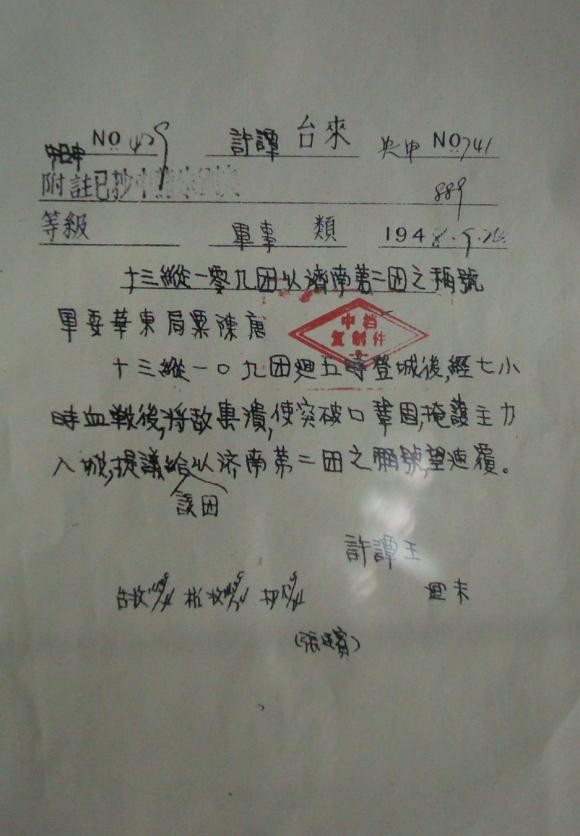 NO 429 許譚 台來 央申 NO741
附註已抄 889
等級 軍事 類 1948.9.26
十三縱一零九团以濟南第二团之稱號
中档
复制件
軍委華東局粟陳唐
十三縱一〇九团廻五時登城後,經七小
時血戰後,將敌擊潰,使突破口鞏固,掩護主力
入城,提議給以济南第二团之稱號,望速覆。
該团
許譚王
(張進賓)